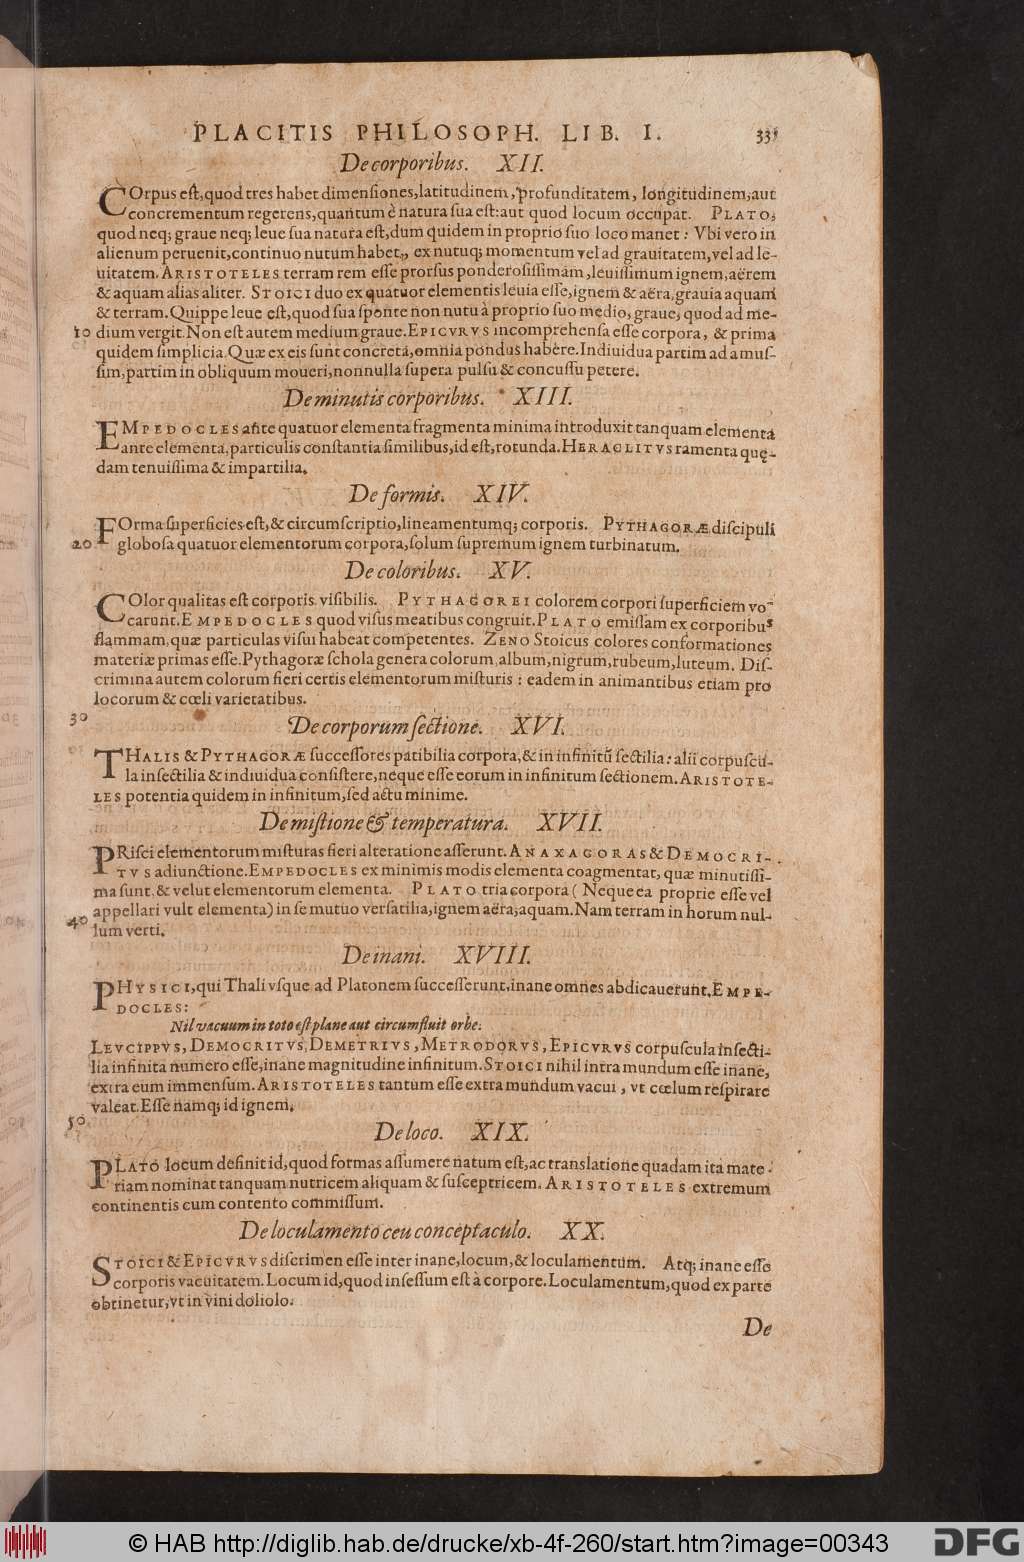 PLACITIS PHILOSOPH. LIB. I. 331
De corporibus. XII.
COrpus est, quod tres habet dimensiones, latitudinem, profunditatem, longitudinem, aut
concrementum regerens, quantum è natura sua est: aut quod locum occupat. PLATO,
quod neq; graue neq; leue sua natura est, dum quidem in proprio suo loco manet: Vbi vero in
alienum peruenit, continuo nutum habet, ex nutuq; momentum vel ad grauitatem, vel ad le-
uitatem. ARISTOTELES terram rem esse prorsus ponderosissimam, leuissimum ignem, aërem
& aquam alias aliter. STOICI duo ex quatuor elementis leuia esse, ignem & aëra, grauia aquam
& terram. Quippe leue est, quod sua sponte non nutu à proprio suo medio, graue, quod ad me-
10 dium vergit. Non est autem medium graue. EPICVRVS incomprehensa esse corpora, & prima
quidem simplicia. Quæ ex eis sunt concreta, omnia pondus habere. Indiuidua partim ad amus-
sim, partim in obliquum moueri, nonnulla supera pulsu & concussu petere.
De minutis corporibus. XIII.
EMPEDOCLES ante quatuor elementa fragmenta minima introduxit tanquam elementa
ante elementa, particulis constantia similibus, id est, rotunda. HERACLITVS ramenta quę-
dam tenuissima & impartilia.
De formis. XIV.
FOrma superficies est, & circumscriptio, lineamentumq; corporis. PYTHAGORÆ discipuli
20 globosa quatuor elementorum corpora, solum supremum ignem turbinatum.
De coloribus. XV.
COlor qualitas est corporis visibilis. PYTHAGOREI colorem corpori superficiem vo-
carunt. EMPEDOCLES quod visus meatibus congruit. PLATO emissam ex corporibus
flammam, quæ particulas visui habeat competentes. ZENO Stoicus colores conformationes
materiæ primas esse. Pythagoræ schola genera colorum, album, nigrum, rubeum, luteum. Dis-
crimina autem colorum fieri certis elementorum misturis: eadem in animantibus etiam pro
locorum & cœli varietatibus.
30
De corporum sectione. XVI.
THALIS & PYTHAGORÆ successores patibilia corpora, & in infinitū sectilia: alii corpuscu-
la insectilia & indiuidua consistere, neque esse eorum in infinitum sectionem. ARISTOTE-
LES potentia quidem in infinitum, sed actu minime.
De mistione & temperatura. XVII.
PRisci elementorum misturas fieri alteratione asserunt. ANAXAGORAS & DEMOCRI-
TVS adiunctione. EMPEDOCLES ex minimis modis elementa coagmentat, quæ minutissi-
ma sunt, & velut elementorum elementa. PLATO tria corpora (Neque ea proprie esse vel
appellari vult elementa) in se mutuo versatilia, ignem aëra, aquam. Nam terram in horum nul-
40 lum verti.
De inani. XVIII.
PHYSICI, qui Thali vsque ad Platonem successerunt, inane omnes abdicauerunt. EMPE-
DOCLES:
Nil vacuum in toto est plane aut circumfluit orbe.
LEVCIPPVS, DEMOCRITVS, DEMETRIVS, METRODORVS, EPICVRVS corpuscula insecti-
lia infinita numero esse, inane magnitudine infinitum. STOICI nihil intra mundum esse inane,
extra eum immensum. ARISTOTELES tantum esse extra mundum vacui, vt cœlum respirare
valeat. Esse namq; id ignem.
50
De loco. XIX.
PLATO locum definit id, quod formas assumere natum est, ac translatione quadam ita mate-
riam nominat tanquam nutricem aliquam & susceptricem. ARISTOTELES extremum
continentis cum contento commissum.
De loculamento ceu conceptaculo. XX.
STOICI & EPICVRVS discrimen esse inter inane, locum, & loculamentum. Atq; inane esse
corporis vacuitatem. Locum id, quod insessum est à corpore. Loculamentum, quod ex parte
obtinetur, vt in vini doliolo.
De
© HAB http://diglib.hab.de/drucke/xb-4f-260/start.htm?image=00343
DFG